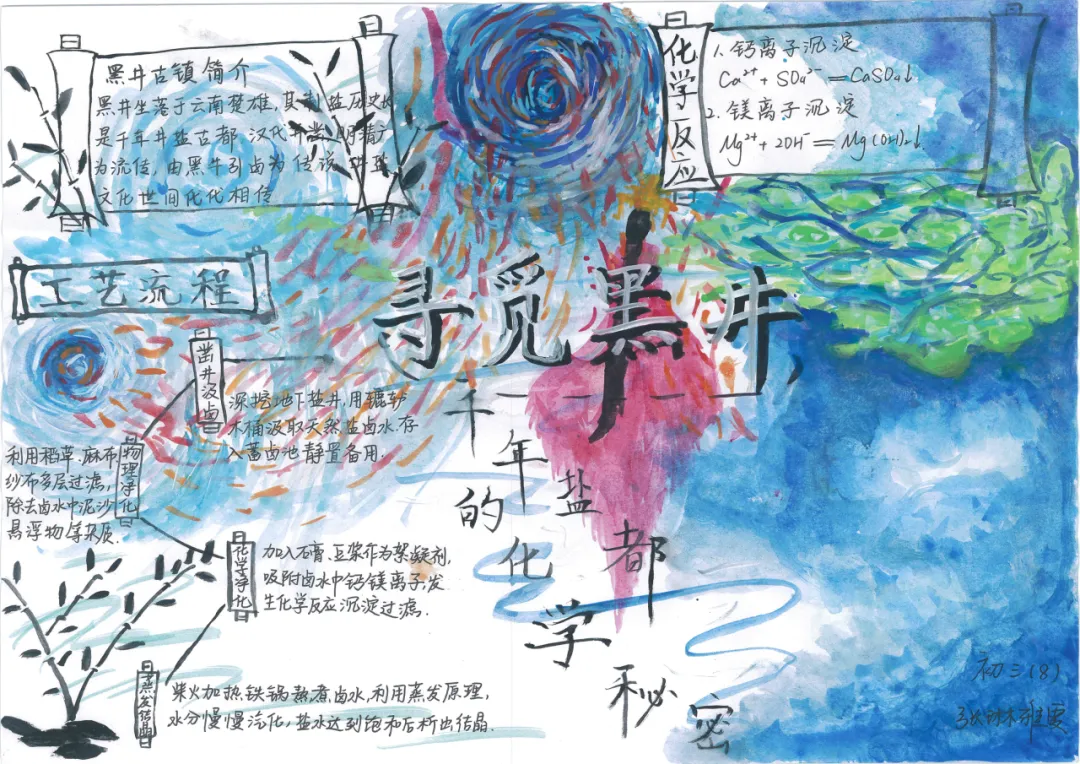 黑井古镇简介
黑井坐落于云南楚雄,其制盐历史长
是千年井盐古都 汉代开凿 明清广
为流传,由黑牛引卤为传说 井盐
文化世间代代相传
化学反应
1.钙离子沉淀
Ca²⁺+SO₄²⁻=CaSO₄↓
2.镁离子沉淀
Mg²⁺+2OH⁻=Mg(OH)₂↓
寻觅黑井
千年盐都
的化学秘密
工艺流程
凿井汲卤
深挖地下盐井,用辘轳
木桶汲取天然盐卤水.存
入蓄卤池静置备用.
物理净化
利用稻草、麻布,
纱布多层过滤,
除去卤水中泥沙
悬浮物等杂质.
化学净化
加入石膏、豆浆作为絮凝剂,
吸附卤水中钙镁离子,发
生化学反应沉淀过滤.
蒸发结晶
柴火加热铁锅熬煮卤水,利用蒸发原理,
水分慢慢汽化,盐水达到饱和后析出结晶.
初三(8)